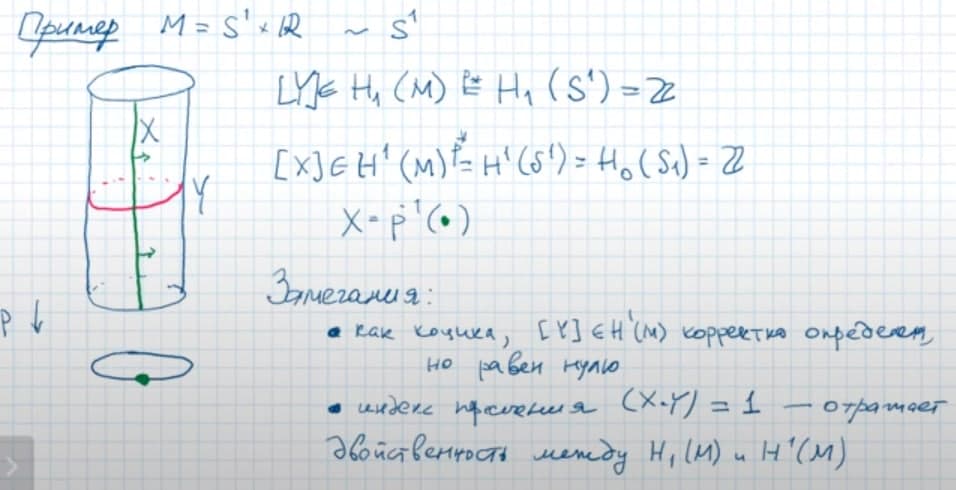 Пример M = S¹ × ℝ ~ S¹
X
Y
p ↓
[Y] ∈ H₁(M) ≅ᵖ* H₁(S¹) = ℤ
[X] ∈ H¹(M) =ᵖ* H¹(S¹) = H₀(S₁) = ℤ
X = p⁻¹(•)
Замечания:
• как коцикл, [Y] ∈ H¹(M) корректно определен,
но равен нулю
• индекс (X·Y) = 1 — отражает
двойственность между H₁(M) и H¹(M)